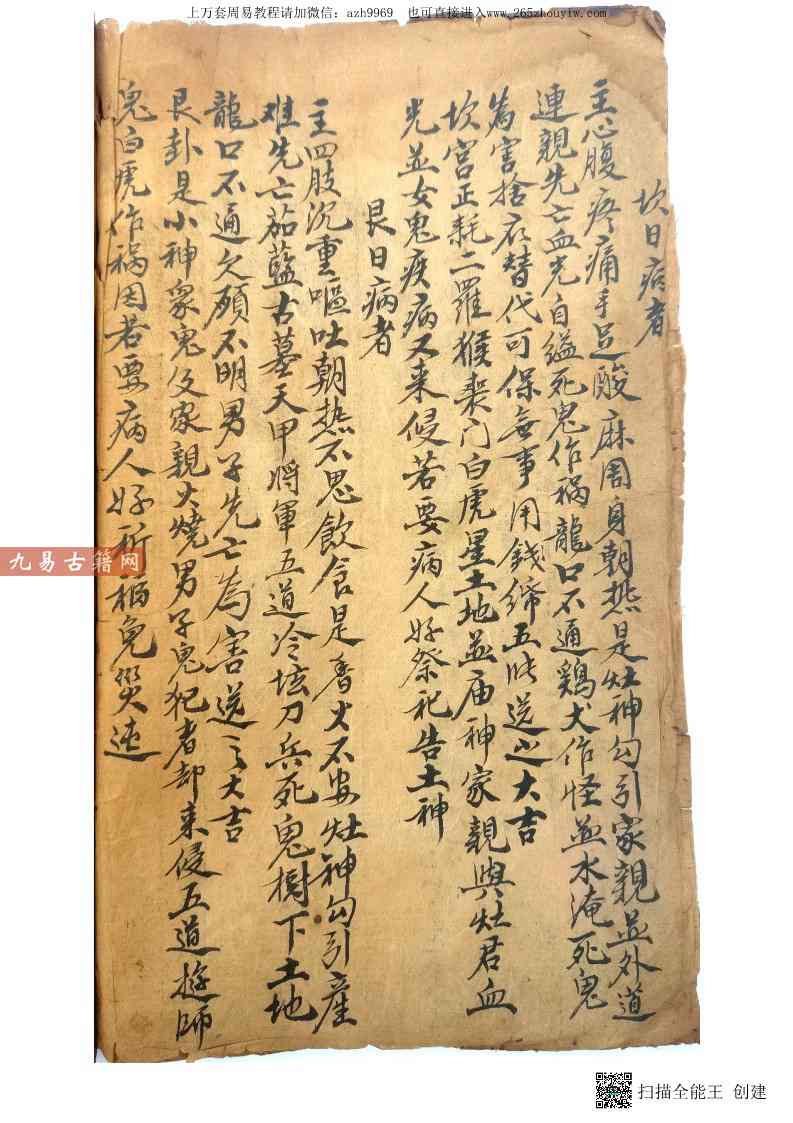 上万套周易教程请加微信：azh9969　也可直接进入www.265zhouyiw.com
坎日病者
主心腹疼痛手足酸麻周身朝热是灶神勾引家親並外道
連親先亡血光自縊死鬼作禍龍口不通鷄犬作怪並水淹死鬼
為害捨衣替代可保無事用錢綿五 送之大吉
坎宫正耗二羅猴丧门白虎星土地並庙神家親與灶君血
光並女鬼疾病又来侵若要病人好祭祀告土神
艮日病者
主四肢沉重嘔吐朝热不思飲食是香火不安灶神勾引産
难先亡茄藍古墓天甲將軍五道冷坛刀兵死鬼樹下土地
龍口不通欠願不明男子先亡為害送之大吉
艮卦是小神衆鬼及家親火燒男子鬼犯者却来侵五道遊師
鬼白虎作祸因若要病人好祈 免災速
九易古籍网
扫描全能王 创建